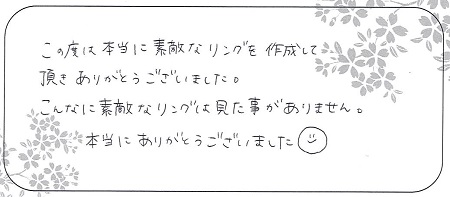 この度は本当に素敵なリングを作成して
頂きありがとうございました。
こんなに素敵なリングは見た事がありません。
本当にありがとうございました